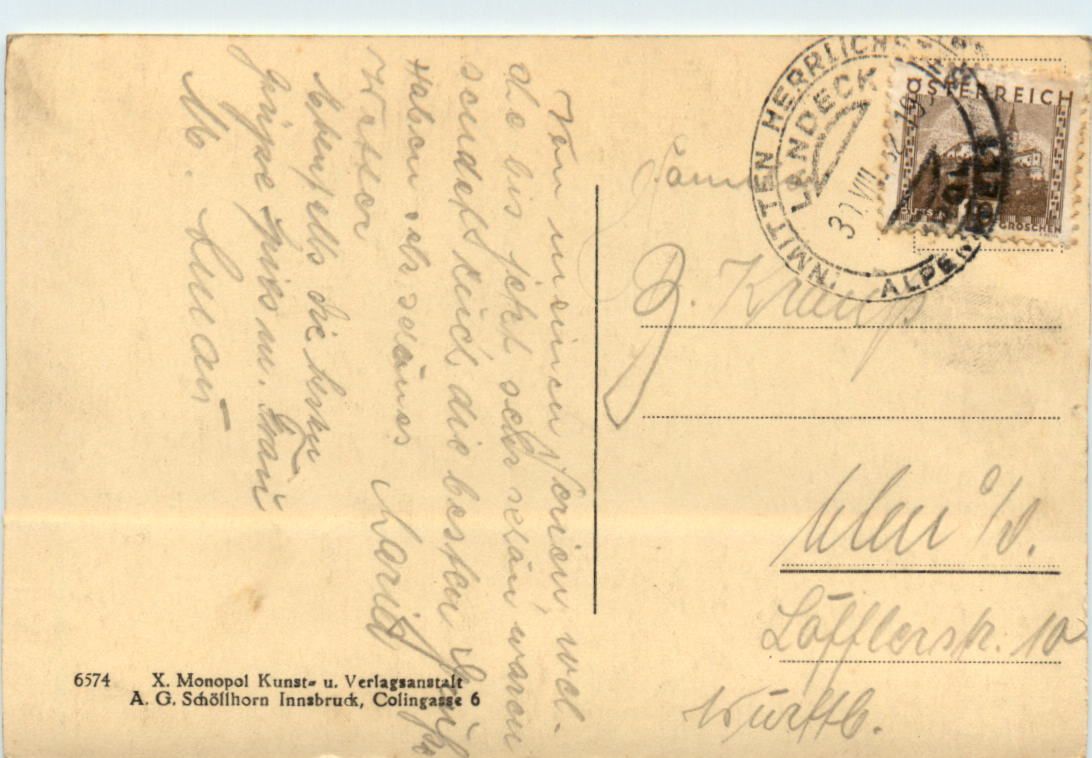 Von meinen Ferien, wel-
die bis jetzt sehr schön waren
sendet Euch die besten Grüße
Haben stets schönes
Wetter
Ebenfalls die besten
Grüße
M.
6574 X. Monopol Kunst- u. Verlagsanstalt
A. G. Schöllhorn Innsbruck, Colingasse 6
INMITTEN HERRLICHSTER ALPENWELT
LANDECK TIROL
ÖSTERREICH
GROSCHEN
Fam.
Ulm a/D.
Löfflerstr. 10
Württb.